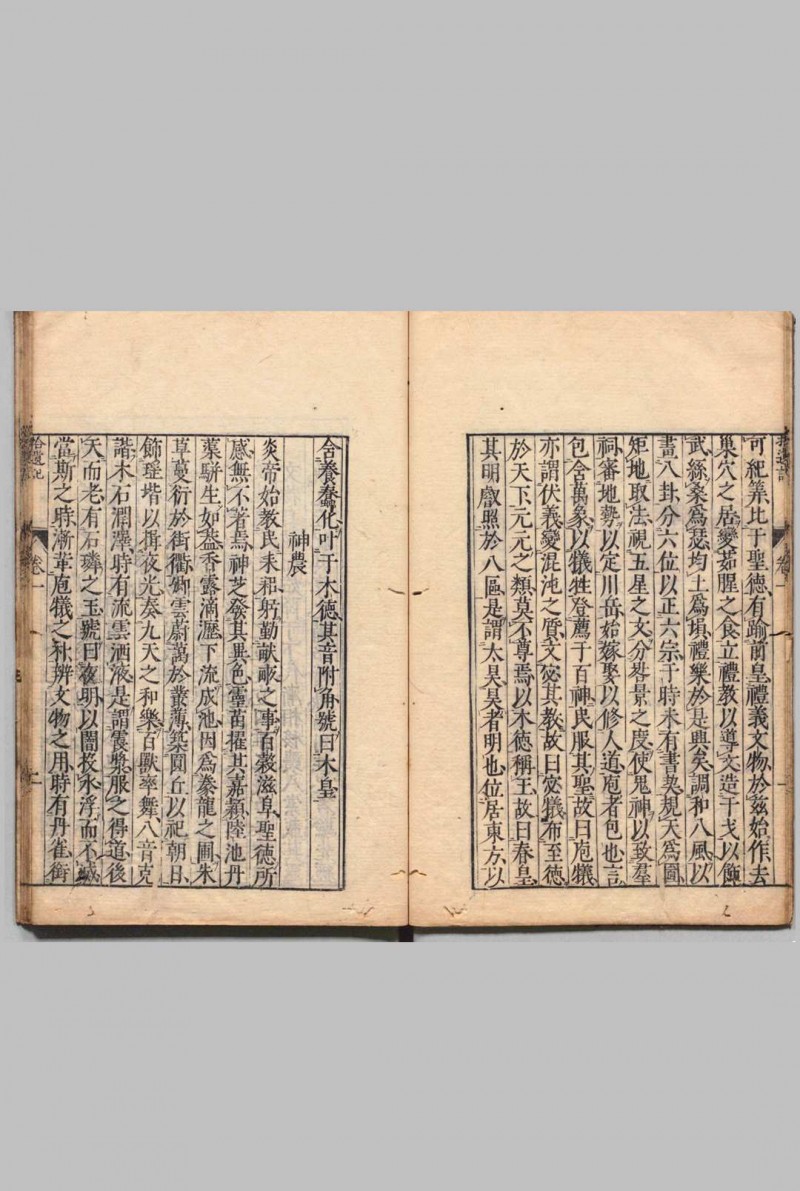 可紀筭比于聖德有踰前皇禮義文物於兹始作去
巢穴之居變茹腥之食立禮教以導文造干戈以飾
武絲桑為瑟均土為塤禮樂於是興矣調和八風以
畫八卦分六位以正六宗于時未有書契規天為圓
矩地取法視五星之文分晷景之度使鬼神以致羣
祠審地勢以定川岳始嫁娶以修人道庖者包也言
包含萬象以犧牲登薦于百神民服其聖故曰庖犧
亦謂伏羲變混沌之質文宓其教故曰宓犧布至德
於天下元元之類莫不尊焉以木德稱王故曰春皇
其明叡照於八區是謂太昊昊者明也位居東方以
含養蠢化叶于木德其音附角號曰木皇
神農
炎帝始教民耒耜躬勤畎畝之事百穀滋阜聖德所
感無不著焉神芝發其異色靈苗擢其嘉穎陸池丹
蕖駢生如蓋香露滴瀝下流成池因為豢龍之圃朱
草蔓衍於街衢卿雲蔚藹於叢薄築圓丘以祀朝日
飾瑤堦以揖夜光奏九天之和樂百獸率舞八音克
諧木石潤澤時有流雲洒液是謂霞漿服之得道後
天而老有石璘之玉號曰夜明以闇投水浮而不滅
當斯之時漸革庖犧之朴辨文物之用時有丹雀銜
拾遺記
卷一
二